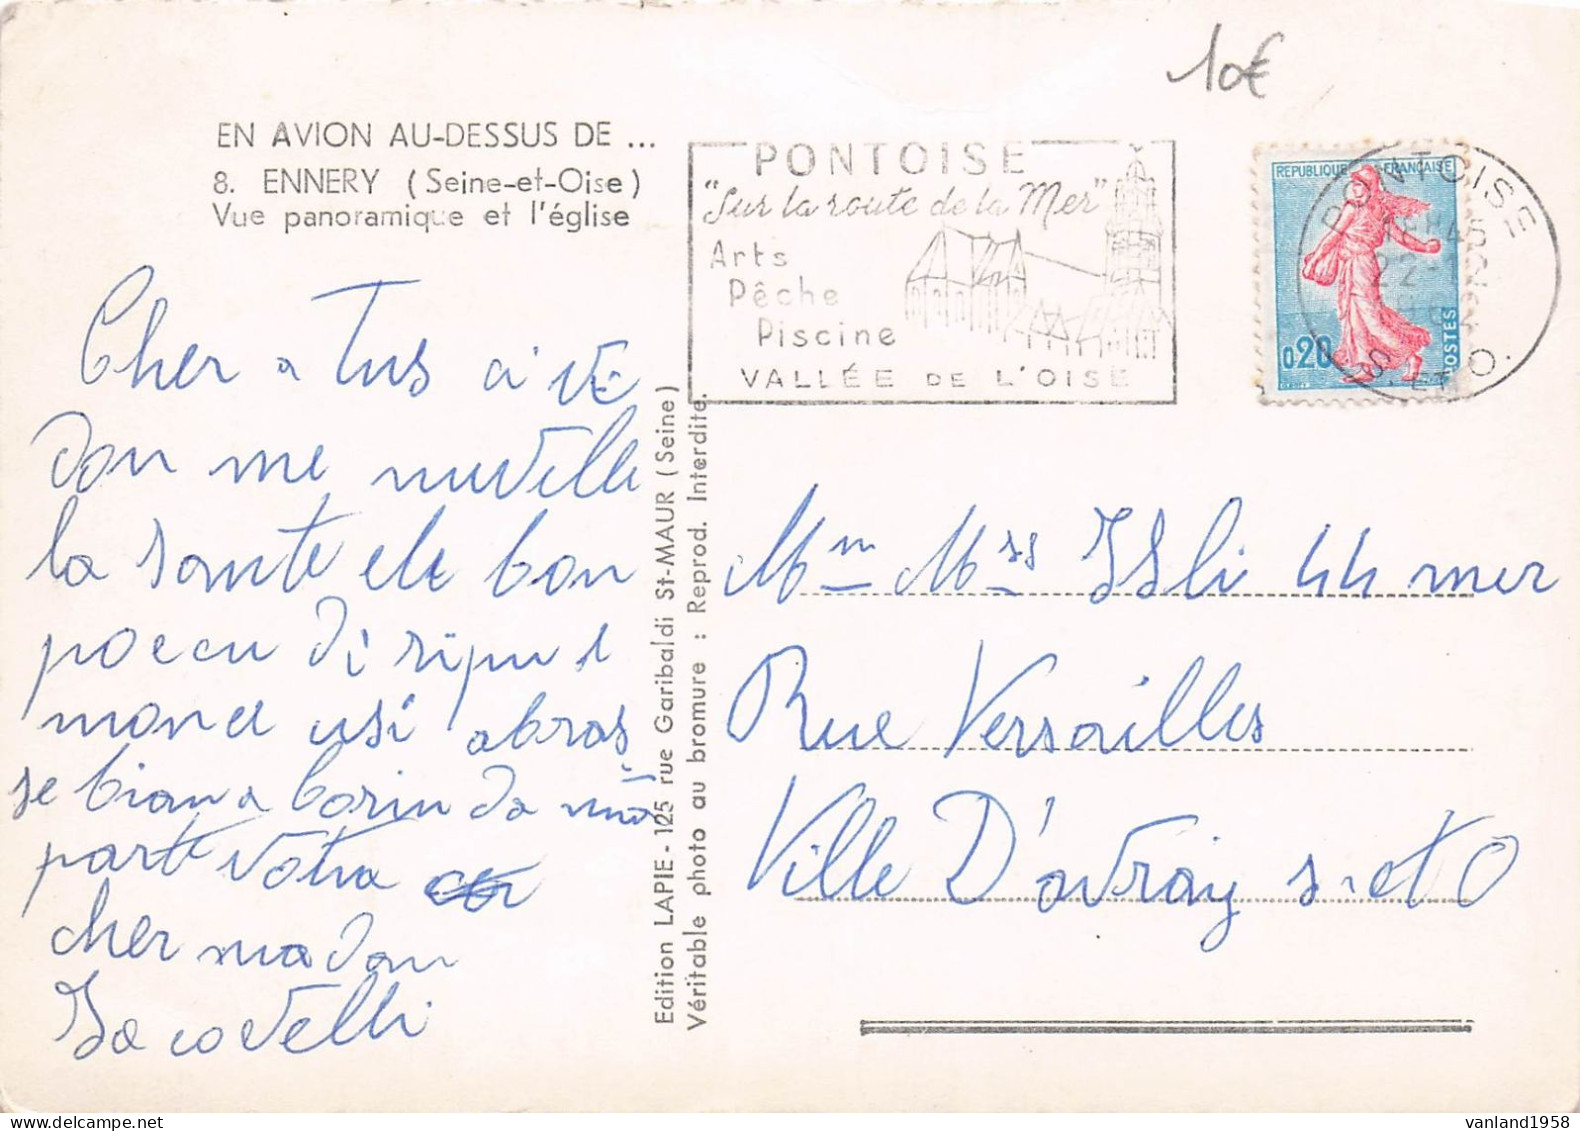 10€
EN AVION AU-DESSUS DE ...
8. ENNERY (Seine-et-Oise)
Vue panoramique et l'église
PONTOISE
"Sur la route de la Mer"
Arts
Pêche
Piscine
VALLÉE DE L'OISE
RÉPUBLIQUE FRANÇAISE
0,20
POSTES
PONTOISE
22
S. ET O.
Cher a Tus ci ve
don me nuvelle
la sante ele bon
poecu di ripu
mone usi abras
se biana borin da mio
part votra
cher madam
Iacovelli
Edition LAPIE - 125 rue Garibaldi St-MAUR (Seine)
Véritable photo au bromure : Reprod. Interdite.
Mm Mss ISli 44 mer
Rue Versailles
Ville D'avray s. et O
vanland1958